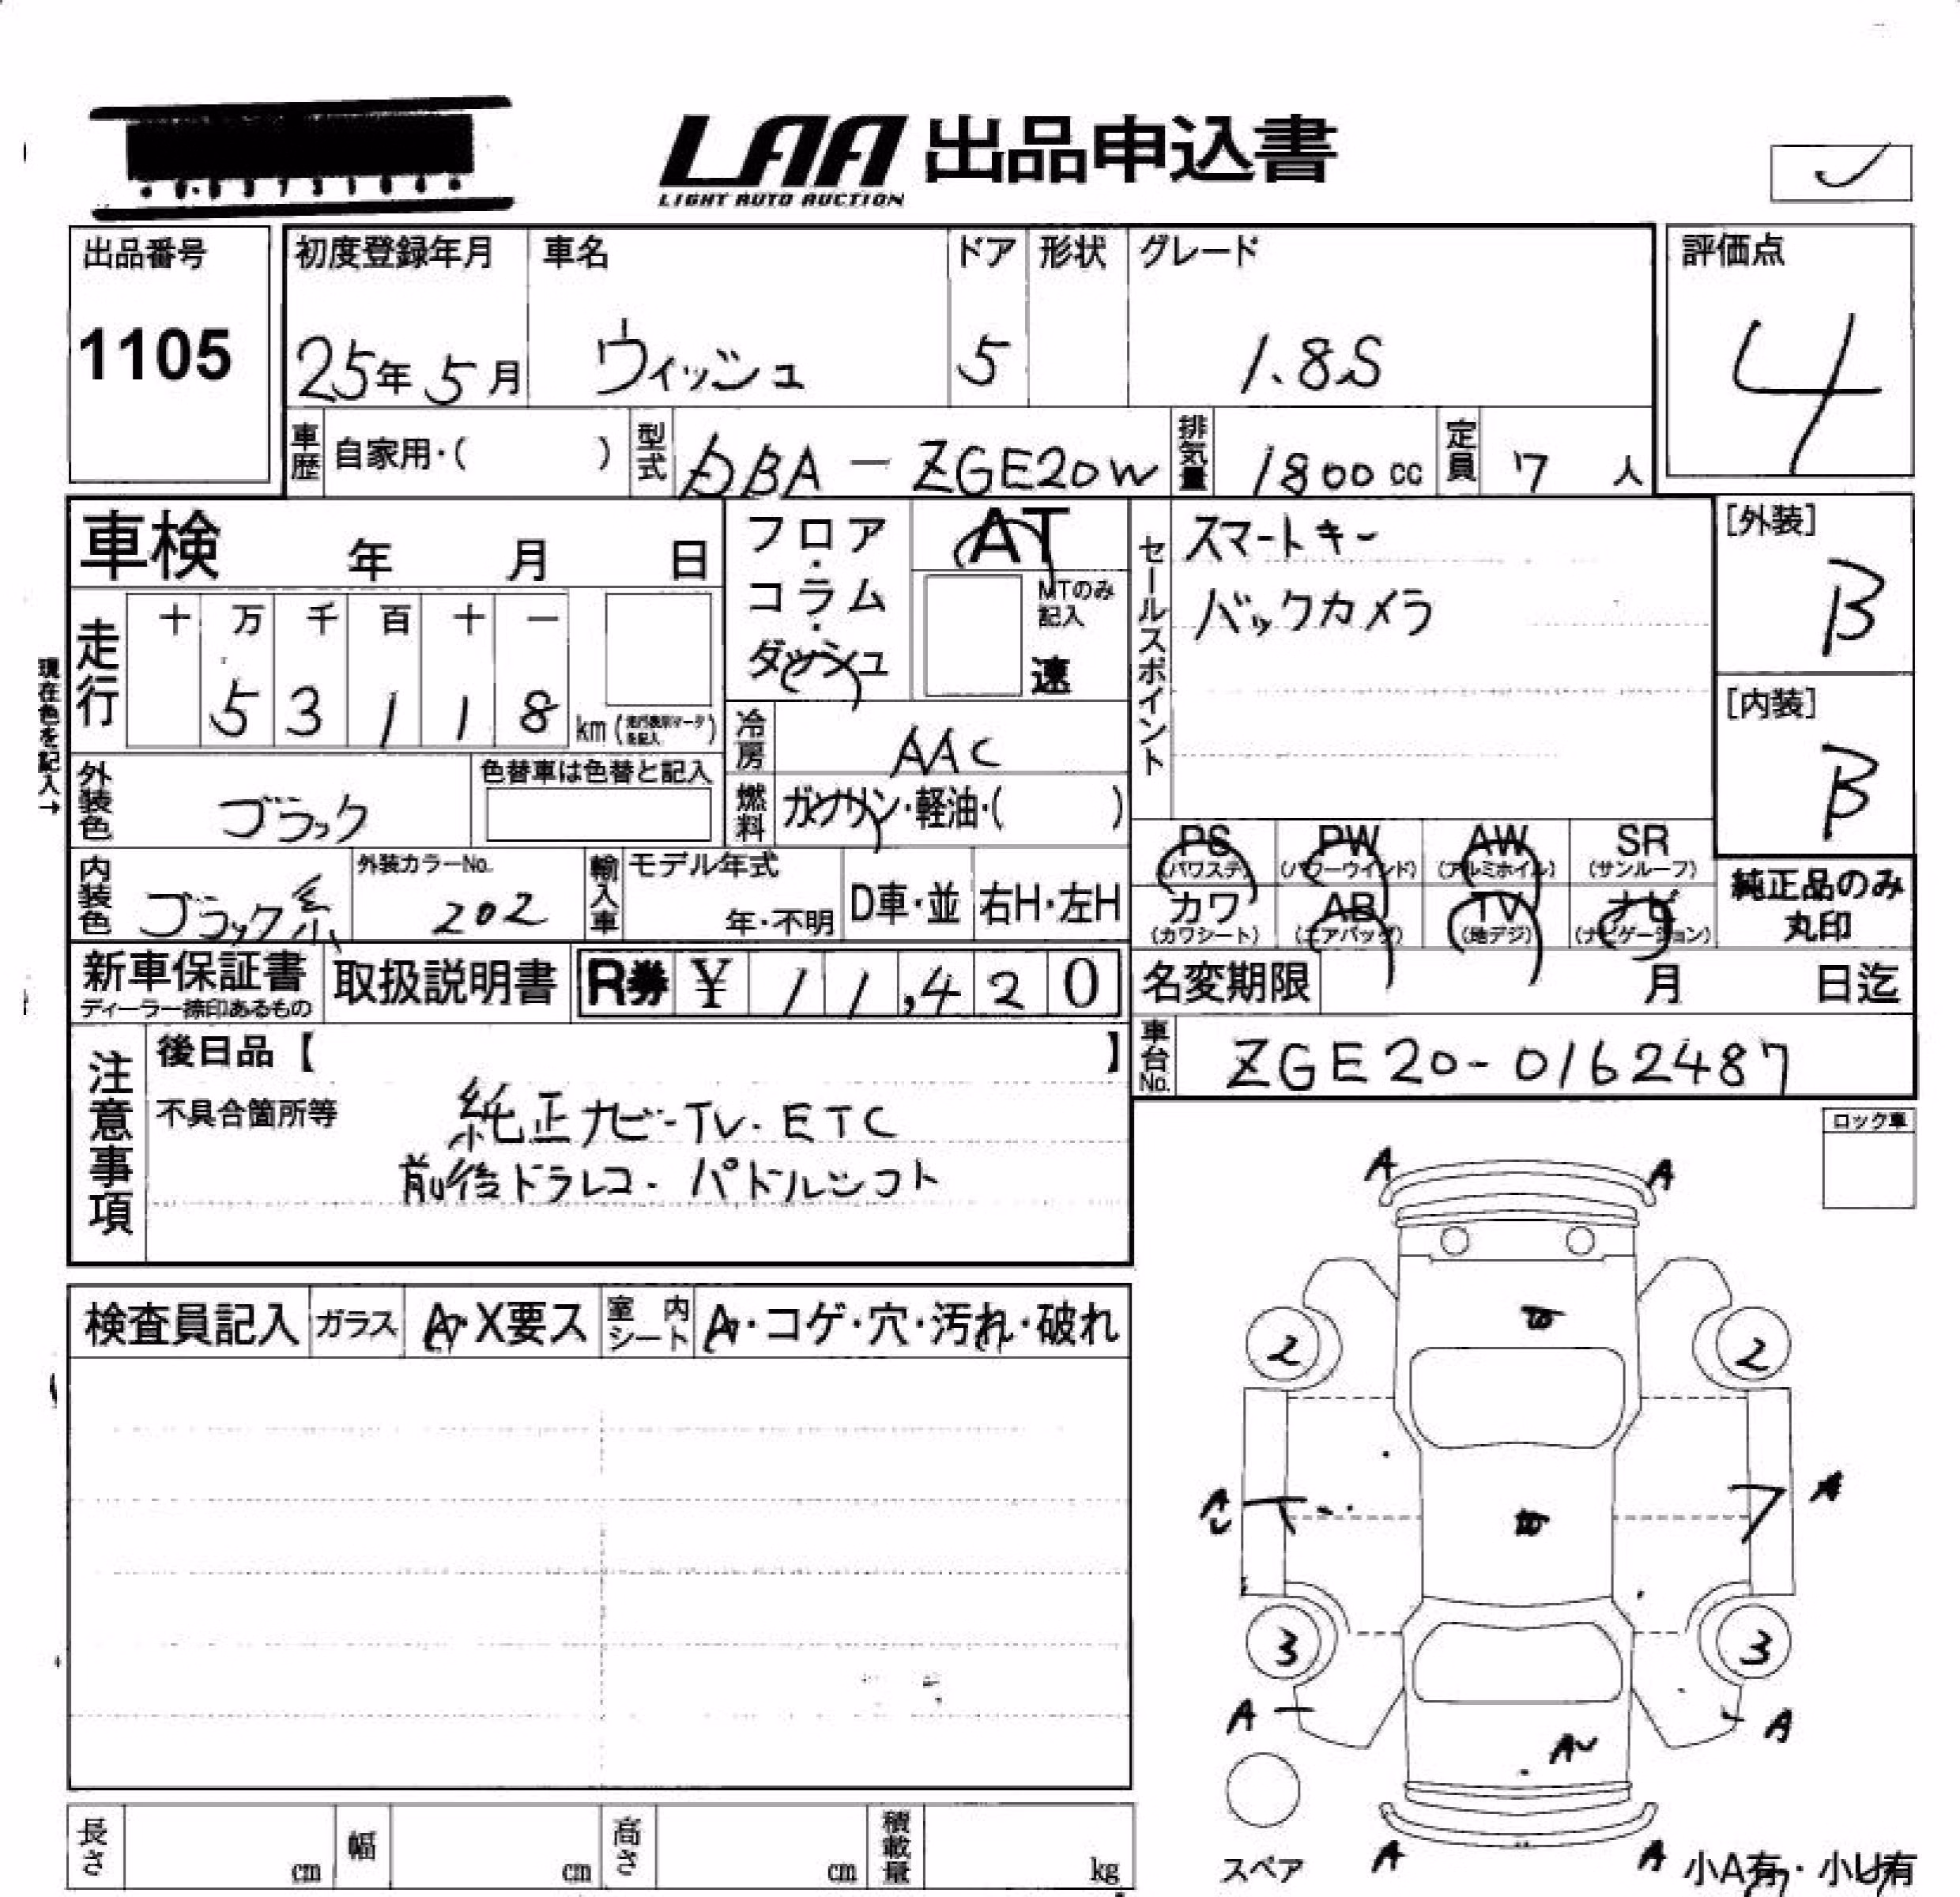 LAA 出品申込書
LIGHT AUTO AUCTION
出品番号
1105
初度登録年月
25年 5月
車名
ウィッシュ
ドア
5
形状
グレード
1.8S
評価点
4
車歴 自家用・( )
型式 DBA - ZGE20W
排気量 1800 cc
定員 7 人
車検 年 月 日
フロア・コラム・ダッシュ
AT
MTのみ記入
速
セールスポイント
スマートキー
バックカメラ
[外装]
B
[内装]
B
現在色を記入→
走行
十 万 千 百 十 一
5 3 1 1 8 km
冷房 AAC
外装色 ブラック
色替車は色替と記入
燃料 ガソリン・軽油・( )
PS (パワステ)
PW (パワーウインド)
AW (アルミホイル)
SR (サンルーフ)
カワ (カワシート)
AB (エアバッグ)
TV (地デジ)
ナビ (ナビゲーション)
純正品のみ
丸印
内装色 ブラック系
外装カラーNo.
202
輸入車
モデル年式
年・不明
D車・並
右H・左H
新車保証書
ディーラー捺印あるもの
取扱説明書
R券 ¥ 11,420
名変期限 月 日迄
車台No. ZGE20-0162487
注意事項
後日品【 】
不具合箇所等
純正ナビ-TV・ETC
前後ドラレコ・パドルシフト
ロック車
検査員記入
ガラス
A・X要ス
室内シート
A・コゲ・穴・汚れ・破れ
A A
2 2
A
3 3
A A
A
スペア
A A
小A有・小U有
長さ cm
幅 cm
高さ cm
積載量 kg